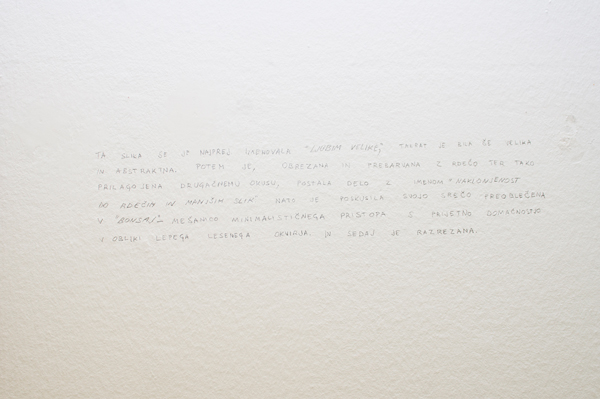 TA SLIKA SE JE NAJPREJ IMENOVALA "LJUBIM VELIKE", TAKRAT JE BILA ŠE VELIKA
IN ABSTRAKTNA. POTEM JE, OBREZANA IN PREBARVANA Z RDEČO TER TAKO
PRILAGOJENA DRUGAČNEMU OKUSU, POSTALA DELO Z IMENOM "NAKLONJENOST
DO RDEČIH IN MANJŠIH SLIK". NATO JE POSKUSILA SVOJO SREČO PREOBLEČENA
V "BONSAJ" – MEŠANICO MINIMALISTIČNEGA PRISTOPA S PRIJETNO DOMAČNOSTJO
V OBLIKI LEPEGA LESENEGA OKVIRJA. IN SEDAJ JE RAZREZANA.